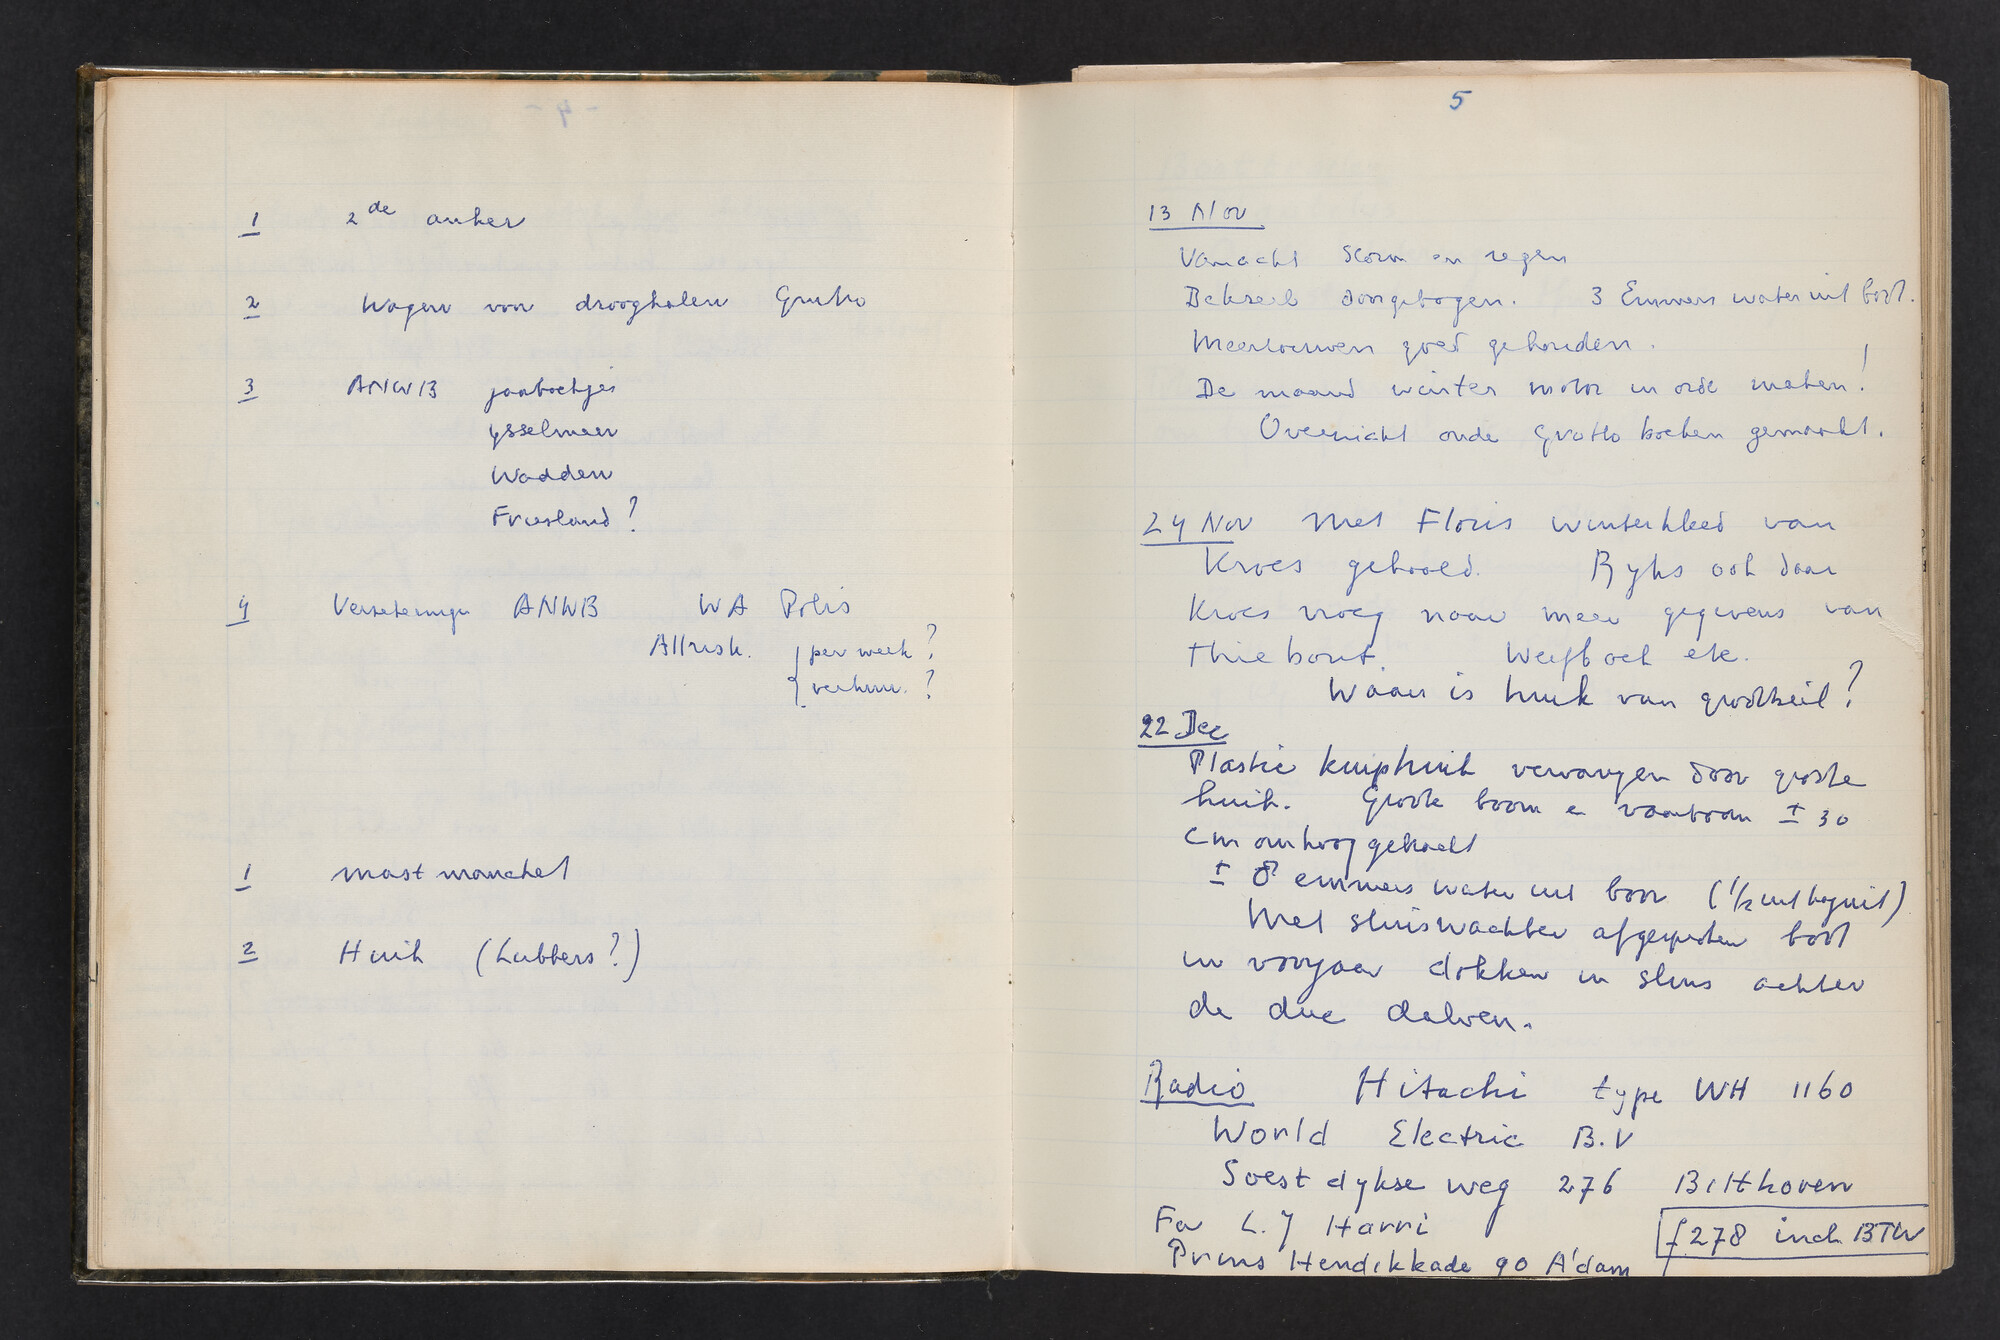 1 2de anker
2 Wagen voor drooghalen Grutto
3 ANWB jaarboekjes
ysselmeer
Wadden
Friesland?
4 Verzekeringen ANWB WA Polis
Allrisk. per week?
verhuur. ?
1 mast manchet
2 Huik (Lubbers?)
5
13 Nov
Vannacht storm en regen
Dekzeil doorgebogen. 3 Emmers water uit boot.
Meertouwen goed gehouden.
De maand winter motor in orde maken!
Overzicht oude Grutto boeken gemaakt.
24 Nov Met Floris winterkleed van
Kroes gehaald. Ryks ook daar
Kroes vroeg naar meer gegevens van
Thiebout. Werfboek etc.
Waar is huik van grootzeil?
22 Dec
Plastic kuiphuik vervangen door grote
huik. Grote boom en vaarboom ± 30
cm omhoog gebracht
± 8 emmers water uit boor (1/2 uit kajuit)
Met sluiswachter afgesproken boot
in voorjaar dokken in sluis achter
de drie dolven.
Radio Hitachi type WH 1160
World Electric B.V
Soestdykse weg 276 Bilthoven
Fa L. J Harri
f 278 incl. BTW
Prins Hendikkade 90 A'dam